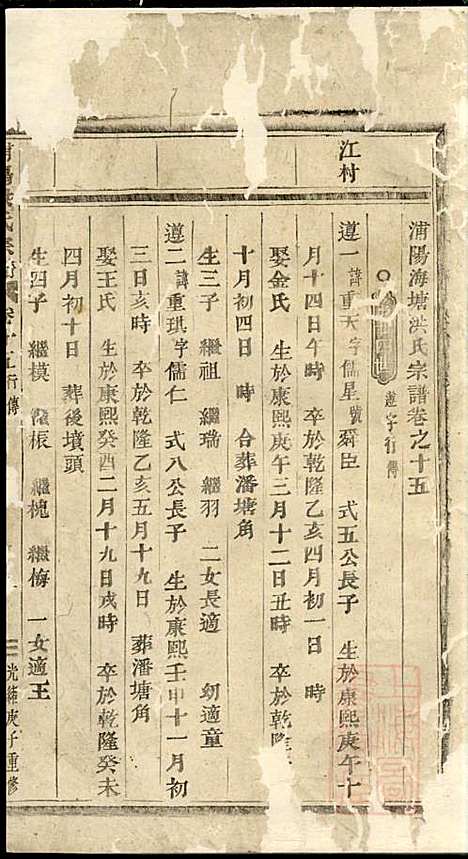 浦陽海塘洪氏宗譜卷之十五
遵字行傳
江村
遵一諱重天字儒星號舜臣 式五公長子 生於康熙庚午十
月十四日午時 卒於乾隆乙亥四月初一日 時
娶金氏 生於康熙庚午三月十二日丑時 卒於乾隆
十月初四日 時 合葬潘塘角
生三子 繼祖 繼瑞 繼羽 二女長適 幼適童
遵二諱重琪字儒仁 式八公長子 生於康熙壬申十一月初
三日亥時 卒於乾隆乙亥五月十九日 葬潘塘角
娶王氏 生於康熙癸酉二月十九日戌時 卒於乾隆癸未
四月初十日 葬後墳頭
生四子 繼模 繼棖 繼槐 繼梅 一女適王
光緒庚子重修